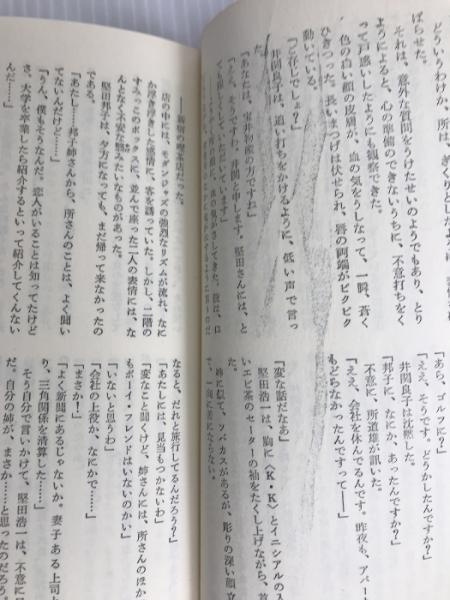 どういうわけか、所は、
ばらせた。
それは、意外な質問をうけたせいのようでもあり、とり
ようによると、心の準備のできないうちに、不意打ちをく
って戸惑いしたようにも観察できた。
色の白い顔の皮膚が、血の気をうしなって、一瞬、蒼く
ひきつった。長いまつげは伏せられ、唇の両端がピクピク
動いている。
「ご存じでしょ?」
井関良子は、追い打ちをかけるように、低い声で言っ
た。
「あなたは、宝井物産の方ですね」
「ええ、そうですわ。井関と申します。堅田さんには、と
「あら、ゴルフに?」
「ええ、そうです。どうかしたんですか?」
井関良子は沈黙した。
「邦子に、なにか、あったんですか?」
不意に、所道雄が訊いた。
「ええ、会社を休んでるんです。昨夜も、アパー
もどらなかったんですって――」
「変な話だなあ」
堅田浩一は、胸に〈K・K〉とイニシアルの入
いエビ茶のセーターの袖をたくし上げながら、首
た。
姉に似て、ソバカスがあるが、彫りの深い顔立
で、一向に苦にならない。
――新宿の喫茶店だった。
店の中には、モダンジャズの強烈なリズムが流れ、なに
か浮き浮きした感情に、客を誘っていた。しかし、二階の
すみっこのボックスに、並んで座った二人の表情には、な
んとなく不安な翳みたいなものがあった。
堅田邦子は、夕方になっても、まだ帰って来なかったの
である。
「あたし……邦子姉さんから、所さんのことは、よく聞い
てないんだけど……」
「うん、僕もそうなんだ。恋人がいることは知ってたけど
さ。大学を卒業したら紹介するといって紹介してくんない
んだ……」
なると、だれと旅行してるんだろう?」
「あたしには、見当もつかないわ」
「変なこと聞くけど、姉さんには、所さんのほか
もボーイ・フレンドはいないのかい」
「いないと思うわ」
「会社の上役か、なにかで……」
「まさか!」
「よく新聞にあるじゃないか。妻子ある上司
り、三角関係を清算した……」
そう自分で言いかけて、堅田浩一は、
た。自分の姉が、まさか……と思ったのだろう。